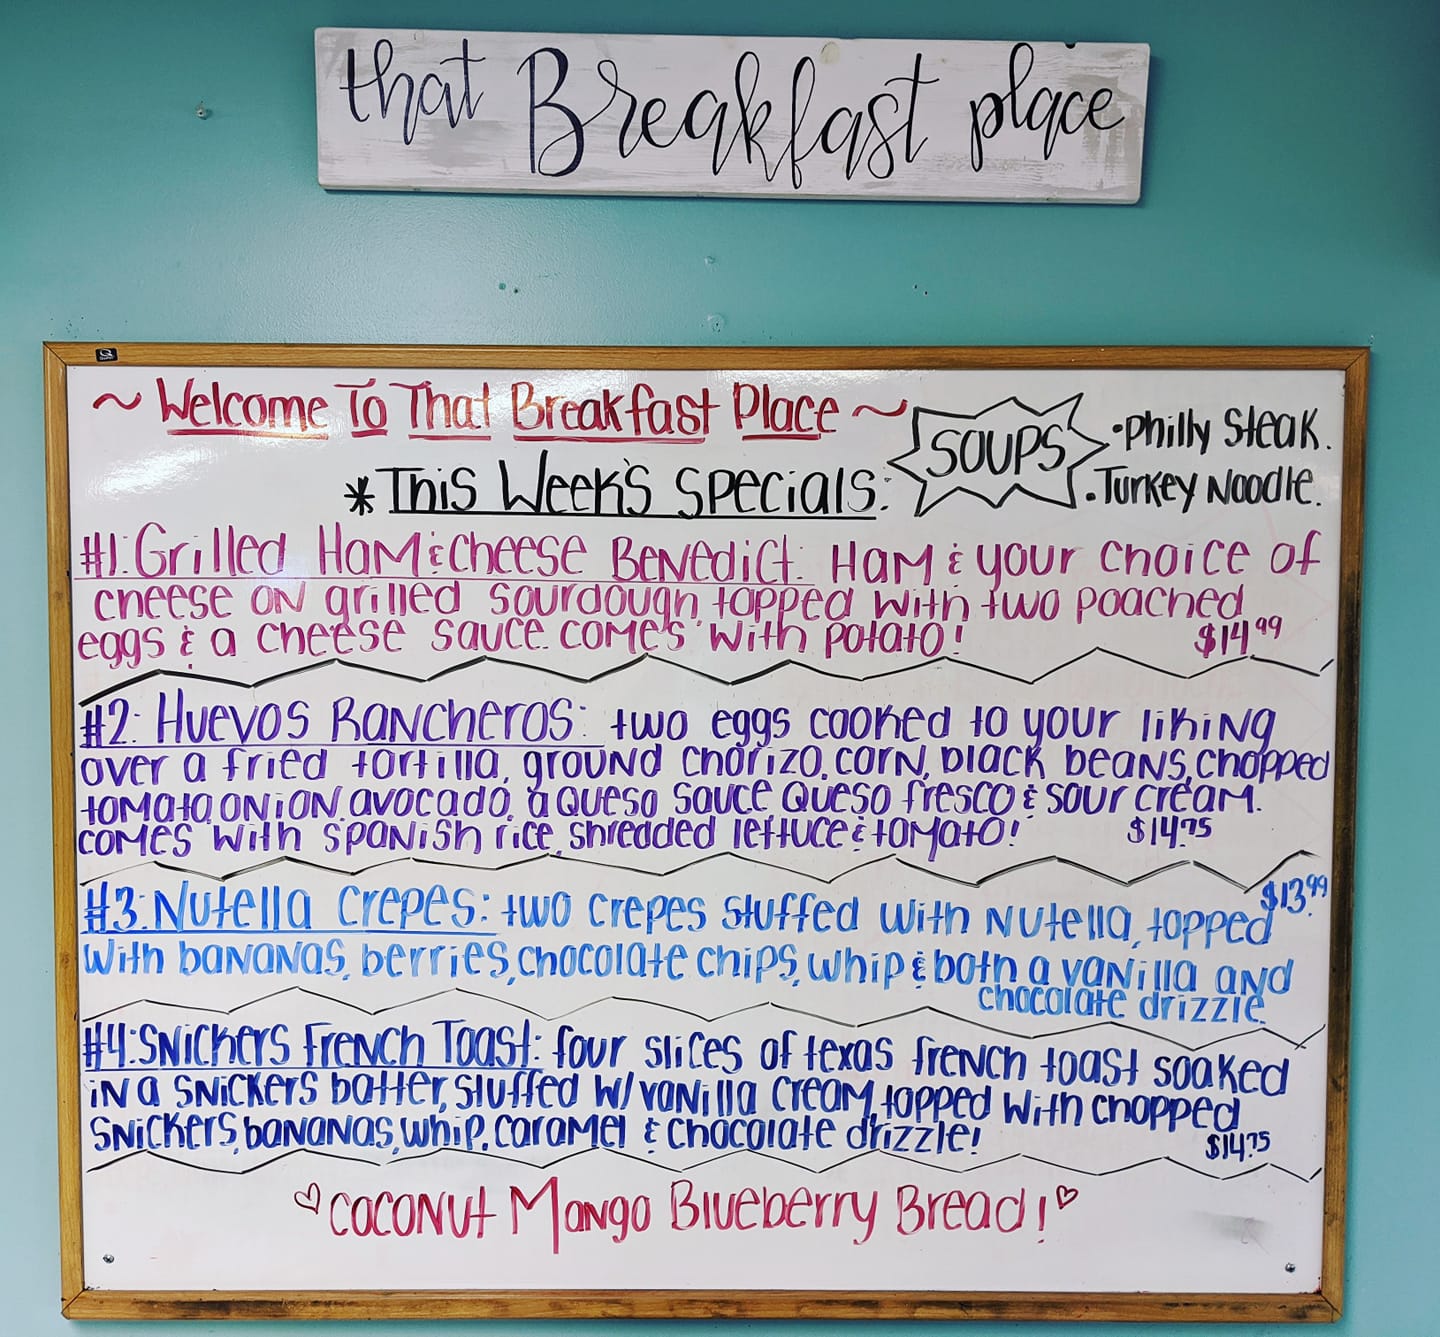 that Breakfast place
~ Welcome To That Breakfast Place ~
SOUPS
• Philly Steak.
• Turkey Noodle.
* This Week's Specials:
#1: Grilled Ham & Cheese Benedict: Ham & your choice of
cheese on grilled sourdough topped with two poached
eggs & a cheese sauce. comes with potato!
$14.99
#2: Huevos Rancheros: two eggs cooked to your liking
over a fried tortilla, ground chorizo, corn, black beans, chopped
tomato, onion, avocado, a queso sauce queso fresco & sour cream.
comes with spanish rice, shredded lettuce & tomato!
$14.75
#3: Nutella Crepes: two crepes stuffed with Nutella, topped
$13.99
with bananas, berries, chocolate chips, whip & both a vanilla and
chocolate drizzle.
#4: Snickers French Toast: four slices of texas french toast soaked
in a snickers batter, stuffed w/ vanilla cream, topped with chopped
snickers, bananas, whip, caramel & chocolate drizzle!
$14.75
♡ Coconut Mango Blueberry Bread! ♡